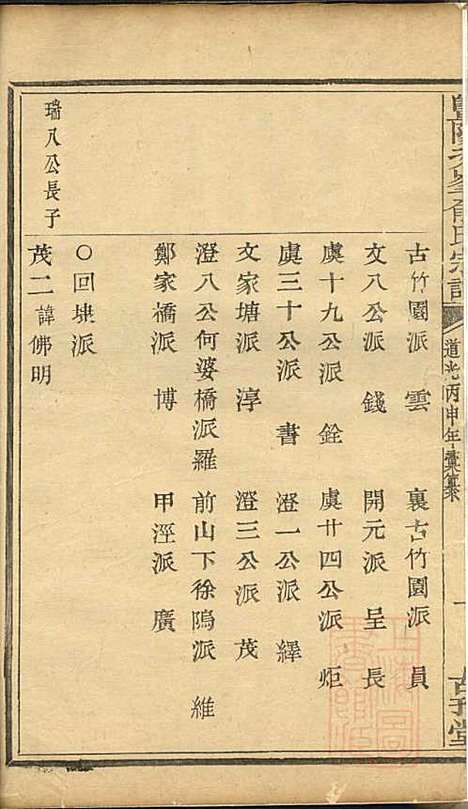 宗譜
道光丙申年彙纂
古竹園派 雲 裏古竹園派 員
文八公派 錢 開元派 呈 長
虞十九公派 銓 虞廿四公派 炬
虞三十公派 書 澄一公派 繹
文家塘派 淳 澄三公派 茂
澄八公何婆橋派 羅 前山下徐隖派 維
鄭家橋派 博 甲涇派 廣
○回埂派
瑞八公長子
茂二 諱佛明